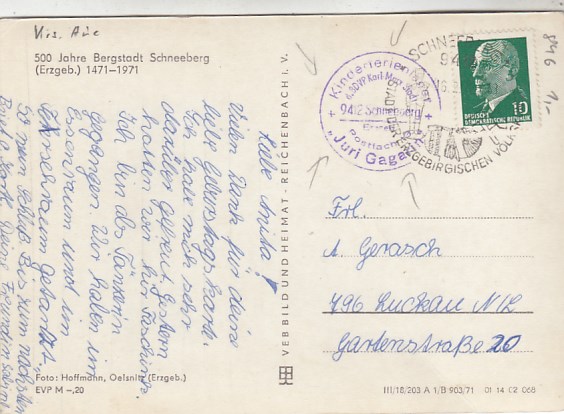 Kr. Aue
500 Jahre Bergstadt Schneeberg
(Erzgeb.) 1471–1971
Liebe Anita!
Vielen Dank für deine
liebe Geburtstagskarte.
Ich habe mich sehr
darüber gefreut. Gestern
hatten wir hier Fasching.
Ich bin als Tänzerin
gegangen. Wir haben im
Essenraum und im
gehabt.
Es zum Schluß Bis zum nächsten
Foto: Hoffmann, Oelsnitz (Erzgeb.)
EVP M –,20
VEB BILD UND HEIMAT · REICHENBACH i. V.
Kinderferienlager
9412 Schneeberg
Postfach
"Juri Gagarin"
SCHNEEB
STADT DER ERZGEBIRGISCHEN VOLK
10
DEUTSCHE
DEMOKRATISCHE REPUBLIK
846
1,-
Frl.
A. Gerasch
796 Luckau N/L
Gartenstraße 20
III/18/203 A 1/B 963/71 01 14 02 068